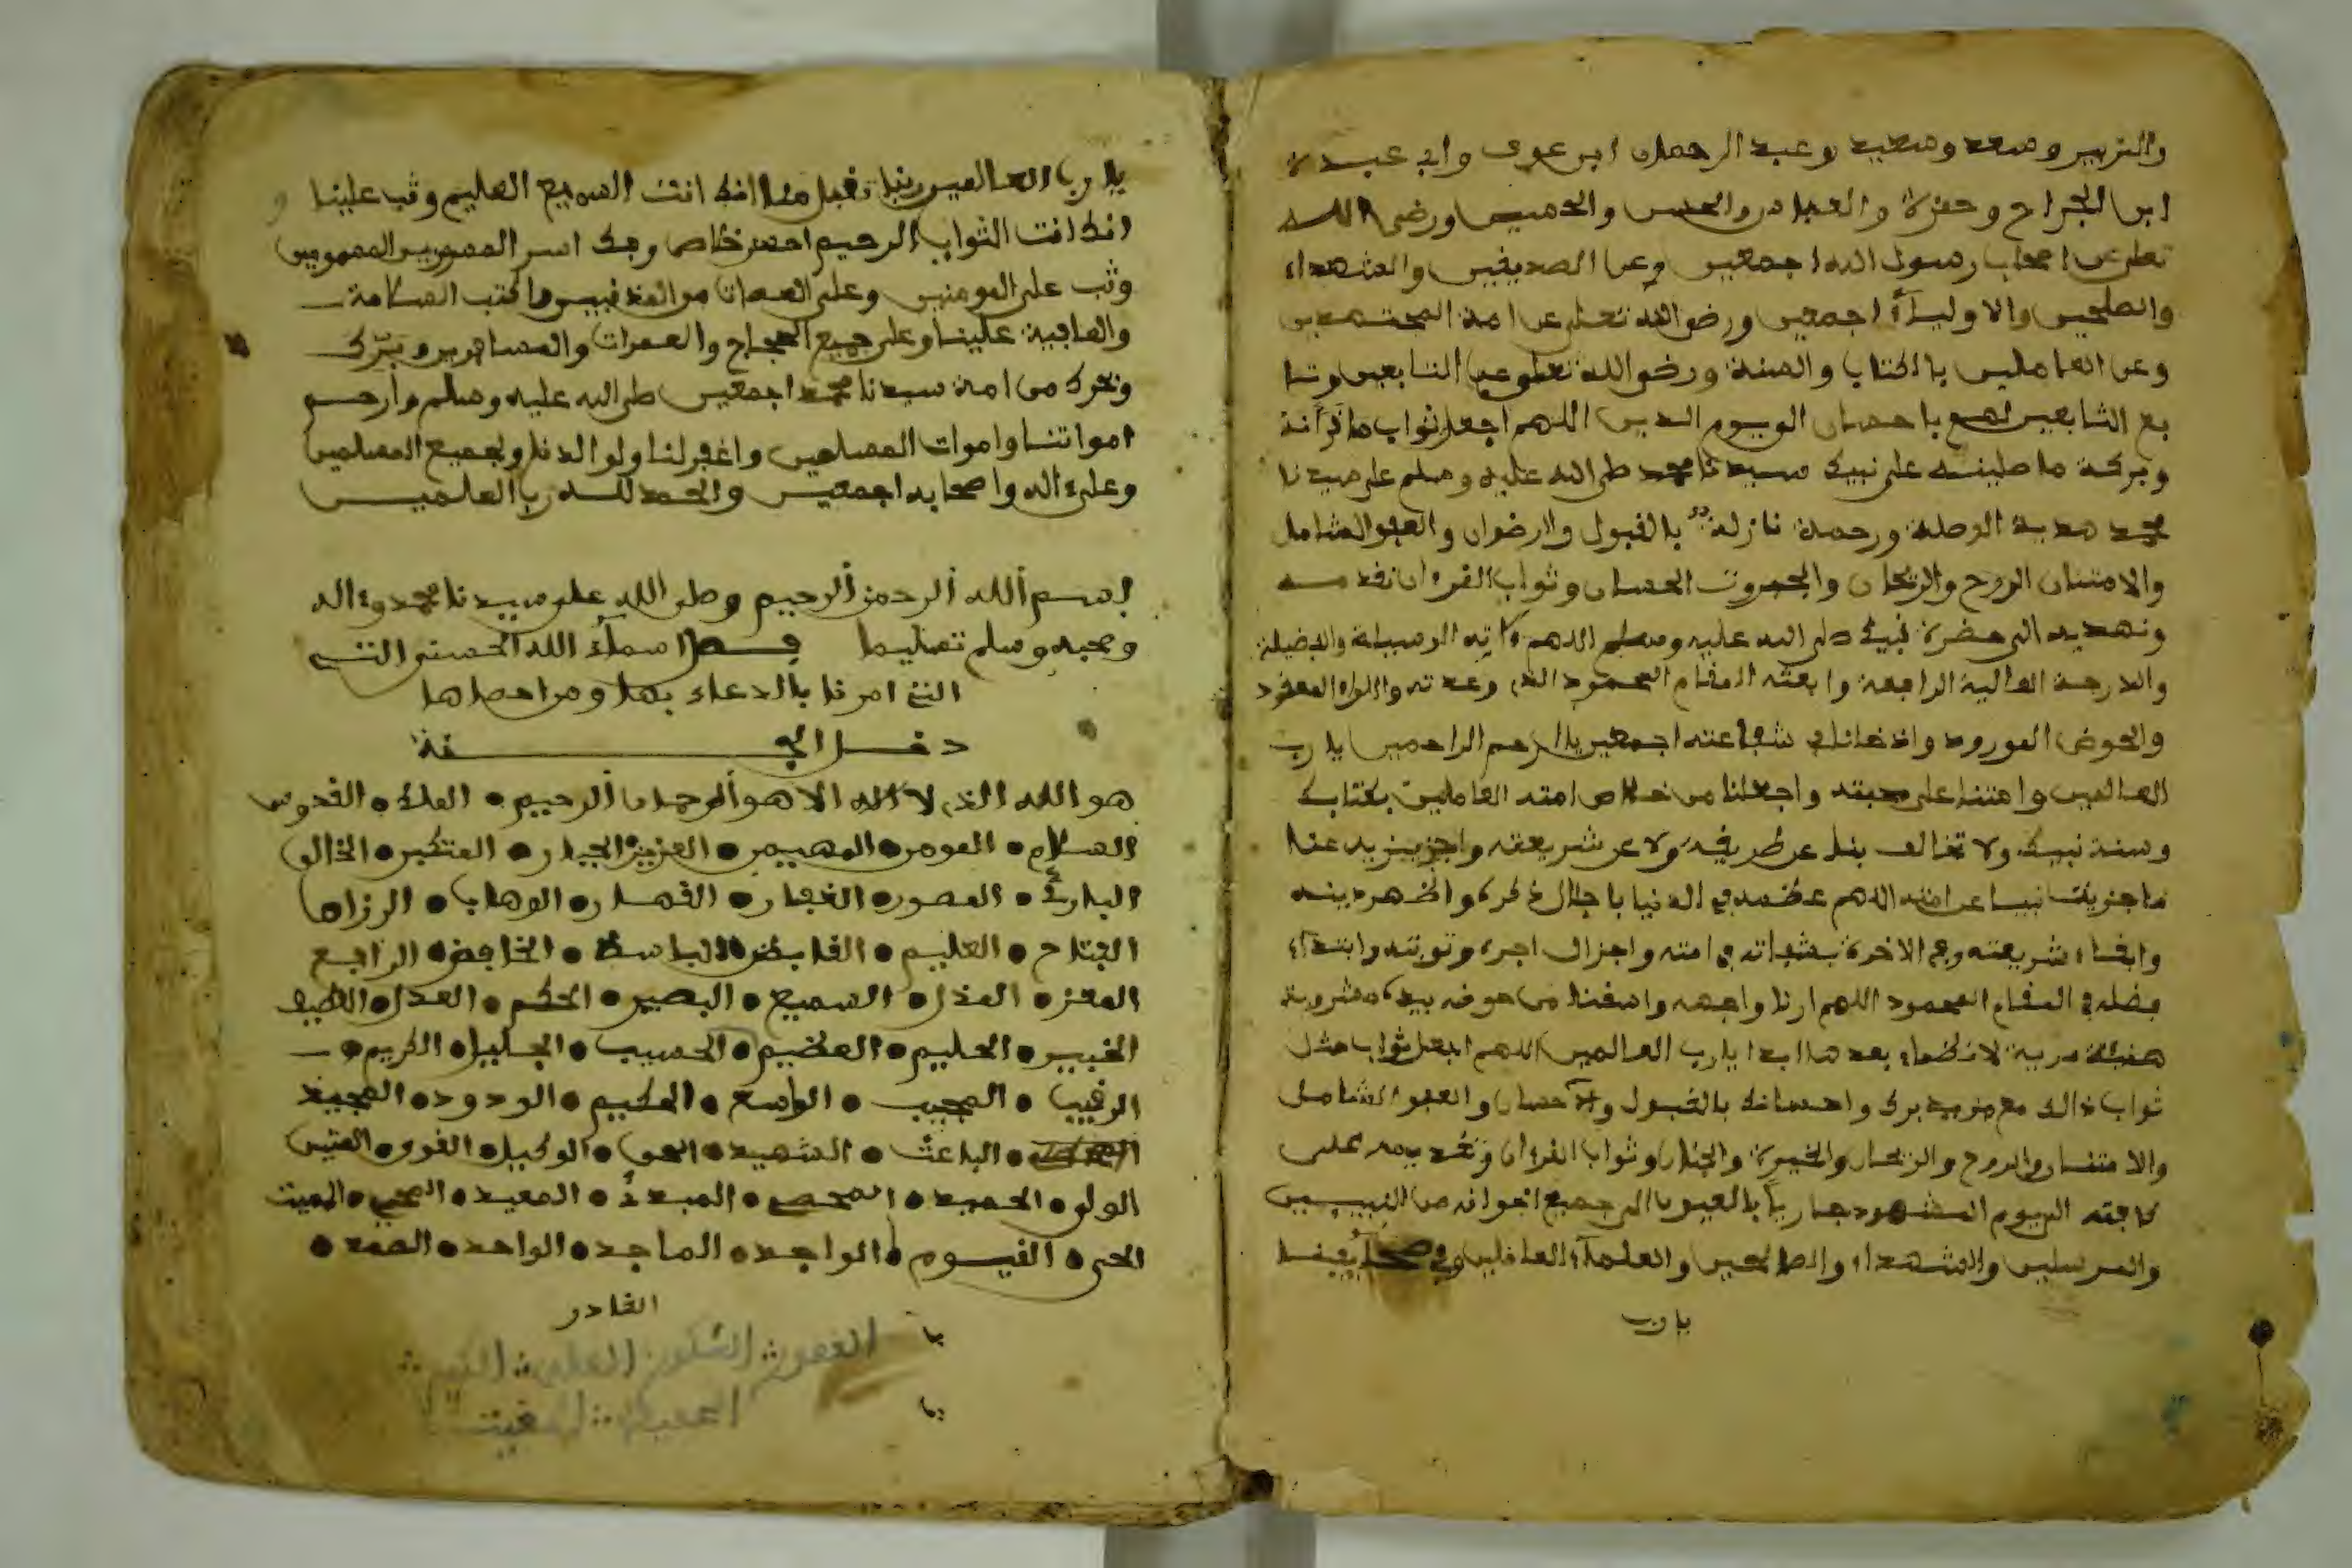 والزبير وسعد وسعيد وعبد الرحمان ابن عوف وابي عبيدة
ابن الجراح وحمزة والعباس والحسن والحسين ورضي الله
تعلى عن اصحاب رسول الله اجمعين وعن الصديقين والشهداء
والصلحين والاولياء اجمعين ورضي الله تعلى عن امة المجتهدين
وعن العاملين بالكتاب والسنة ورضي الله تعلى عن التابعين وتا
بع التابعين لهم باحسان الى يوم الدين اللهم اجعل ثواب ما قرأنه
وبركة ما صلينه على نبيك سيدنا محمد صلى الله عليه وسلم على سيدنا
محمد هدية الوصلة ورحمة نازلة بالقبول والرضوان والعفو الشامل
والامتنان الروح والريحان والحسان وثواب القرءان نقدمه
ونهديه الى حضرة نبيك صلى الله عليه وسلم اللهم ءاته الوسيلة والفضيلة
والدرجة العالية الرافعة وابعثه المقام المحمود الذي وعدته واللواء المعقود
والحوض المورود وادخلنا في شفاعته اجمعين يا ارحم الراحمين يا رب
العالمين وامتنا على محبته واجعلنا من خلاص امته العاملين بكتابك
وسنة نبيك ولا تخالف بنا عن طريقه ولا عن شريعته واجزيزيه عنا
ما جزيت نبيا عن امته اللهم عظمه في الدنيا باجلال ذكره واظهر دينه
وابقاء شريعته وفي الاخرة بشفاته في امته واجزال اجره وثوبته وابتداء
فضله في المقام المحمود اللهم ارنا واجهه واسقنا من حوضه بيده مشروبة
هنيئة مرية لا نظماء بعدها ابدا يا رب العالمين اللهم اجعل ثواب مثل
ثواب ذالك مع مزيد برك واحسانك بالقبول والاحسان والعفو الشامل
والامتنان والروح والريحان والخيرة والجنان وثواب القرءان على
كافته اليوم المشهود جاريا بالعيون الى جميع اخوانه من النبيين
والمرسلين والشهداء والصالحين والعلماء العاملين وفي صحائفنا
يا رب
يا رب العالمين ربنا تقبل منا انك انت السميع العليم وتب علينا
انك انت التواب الرحيم وفك اسر المسورين المهمومين
وتب على المومنين وعلى العصات من المذنبين واكتب السلامة
والعافية علينا وعلى جميع الحجاج والعمرات والمسافرين وبرك
وبحرك من امة سيدنا محمد اجمعين صلى الله عليه وسلم وارحم
امواتنا واموات المسلمين واغفر لنا ولوالدنا ولجميع المسلمين
وعلى ءاله واصحابه اجمعين والحمد لله رب العلمين
بسم الله الرحمن الرحيم وصلى الله على سيدنا محمد وءاله
وصحبه وسلم تسليما فصل اسماء الله الحسنى التي
التي امرنا بالدعاء بها ومن احصاها
دخل الجنة
هو الله الذي لا اله الا هو الرحمان الرحيم • الملك • القدوس
السلام • المومن • المهيمن • العزيز الجبار • المتكبر • الخالق
البارئ • المصور • الغفار • القهار • الوهاب • الرزاق
الفتاح • العليم • القابض • الباسط • الخافض • الرافع
المعز • المذل • السميع • البصير • الحكم • العدل • اللطيف
الخبير • الحليم • العظيم • الحسيب • الجليل • الكريم •
الرقيب • المجيب • الواسع • الحكيم • الودود • المجيد
• الباعث • الشهيد • الحق • الوكيل • القوي • المتين
الولي • الحميد • المحصي • المبدئ • المعيد • المحيي • المميت
الحي • القيوم • الواجد • الماجد • الواحد • الصمد •
القادر
الغفور الشكور العلي الكبير
الحفيظ المقيت